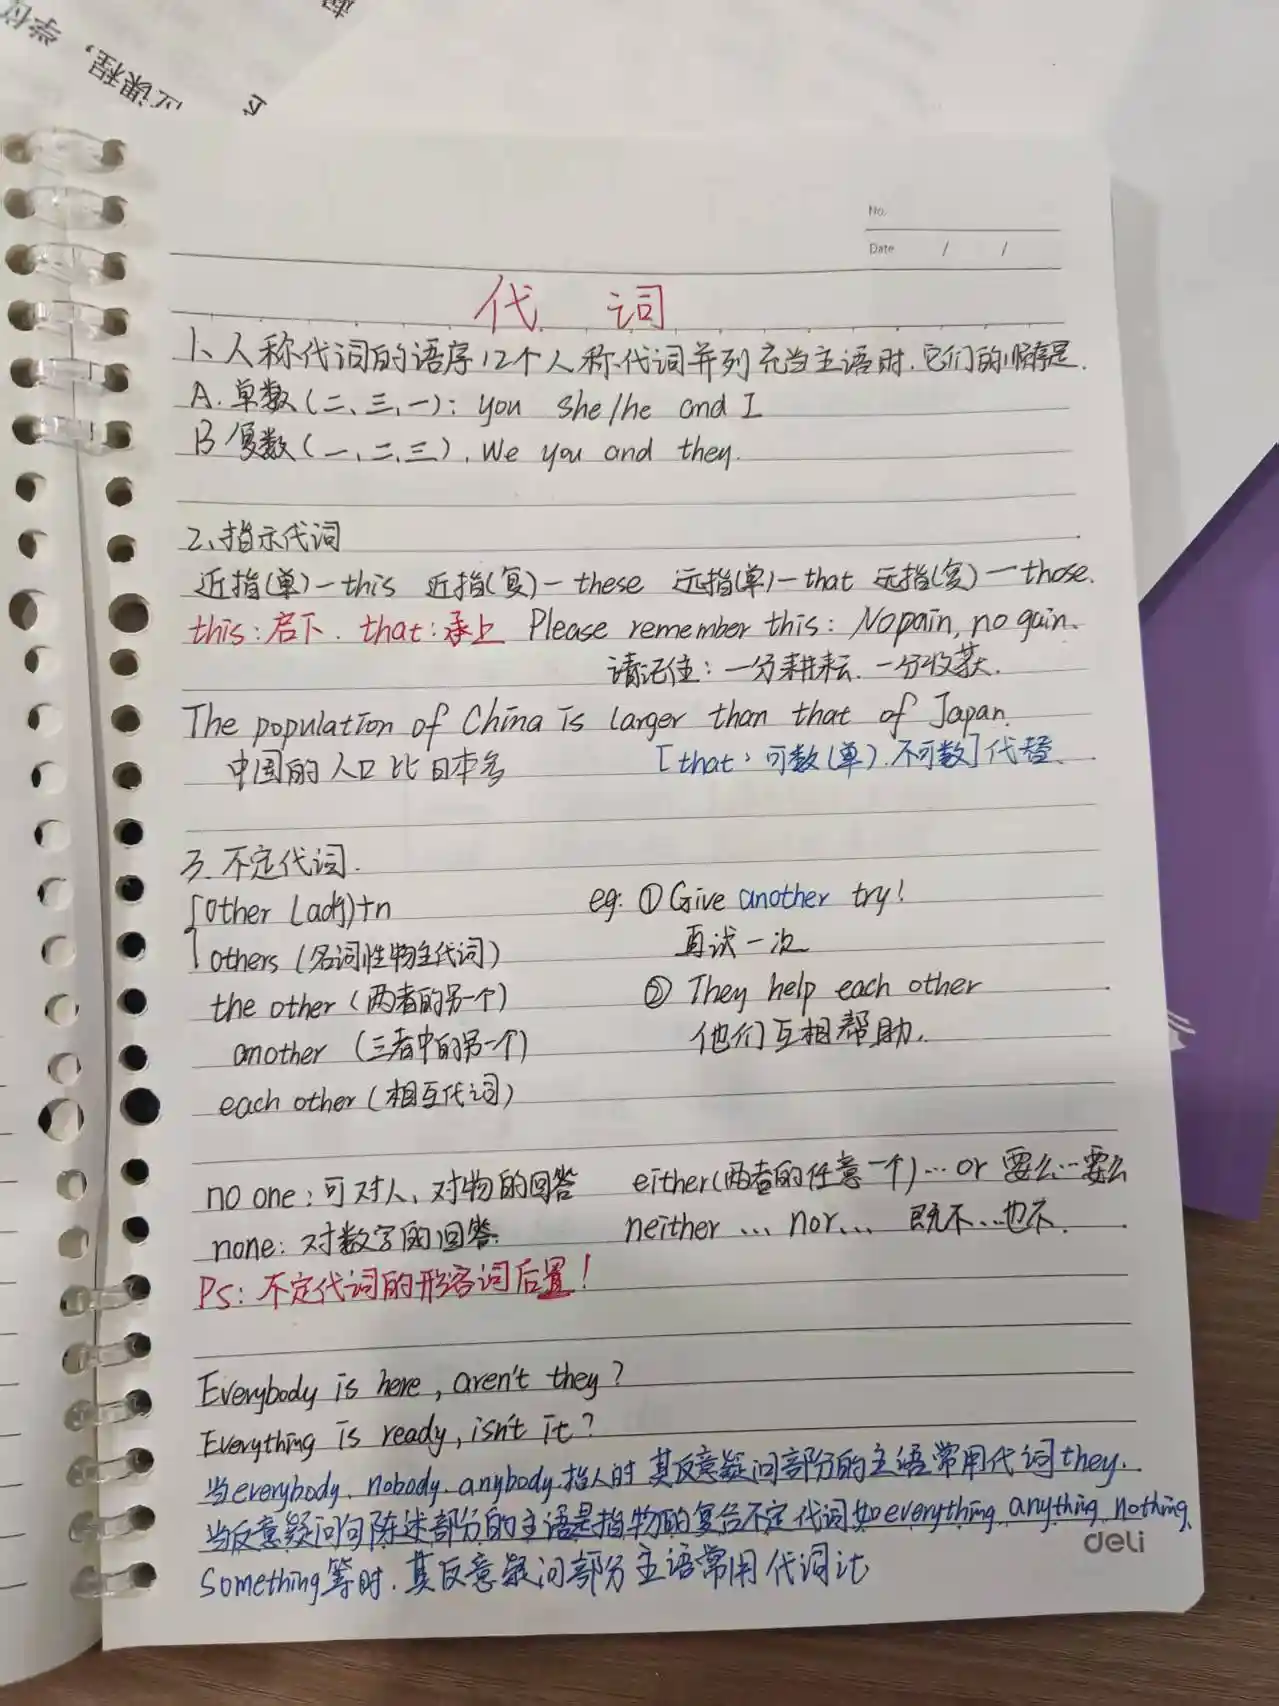 学位
应课程,
No.
Date / /
代 词
1、人称代词的语序,2个人称代词并列充当主语时.它们的顺序是.
A.单数(二、三、一): you she/he and I
B 复数(一、二、三). We you and they.
2、指示代词
近指(单)-this 近指(复)-these 远指(单)-that 远指(复)-those.
this:启下. that:承上 Please remember this: No pain, no gain.
请记住:一分耕耘.一分收获.
The population of China is larger than that of Japan.
中国的人口比日本多 [that:可数(单).不可数]代替.
3.不定代词.
other (adj)+n eg: ①Give another try!
others (名词性物主代词) 再试一次
the other (两者的另一个) ② They help each other
another (三者中的另一个) 他们互相帮助.
each other (相互代词)
no one:可对人、对物的回答 either(两者的任意一个)…or 要么…要么
none:对数字的回答. neither … nor… 既不…也不.
Ps:不定代词的形容词后置!
Everybody is here, aren't they?
Everything is ready, isn't it?
当everybody、nobody、anybody.指人时 其反意疑问部分的主语常用代词they.
当反意疑问句陈述部分的主语是指物的复合不定代词如everything, anything, nothing,
Something等时.其反意疑问部分主语常用代词it
deli